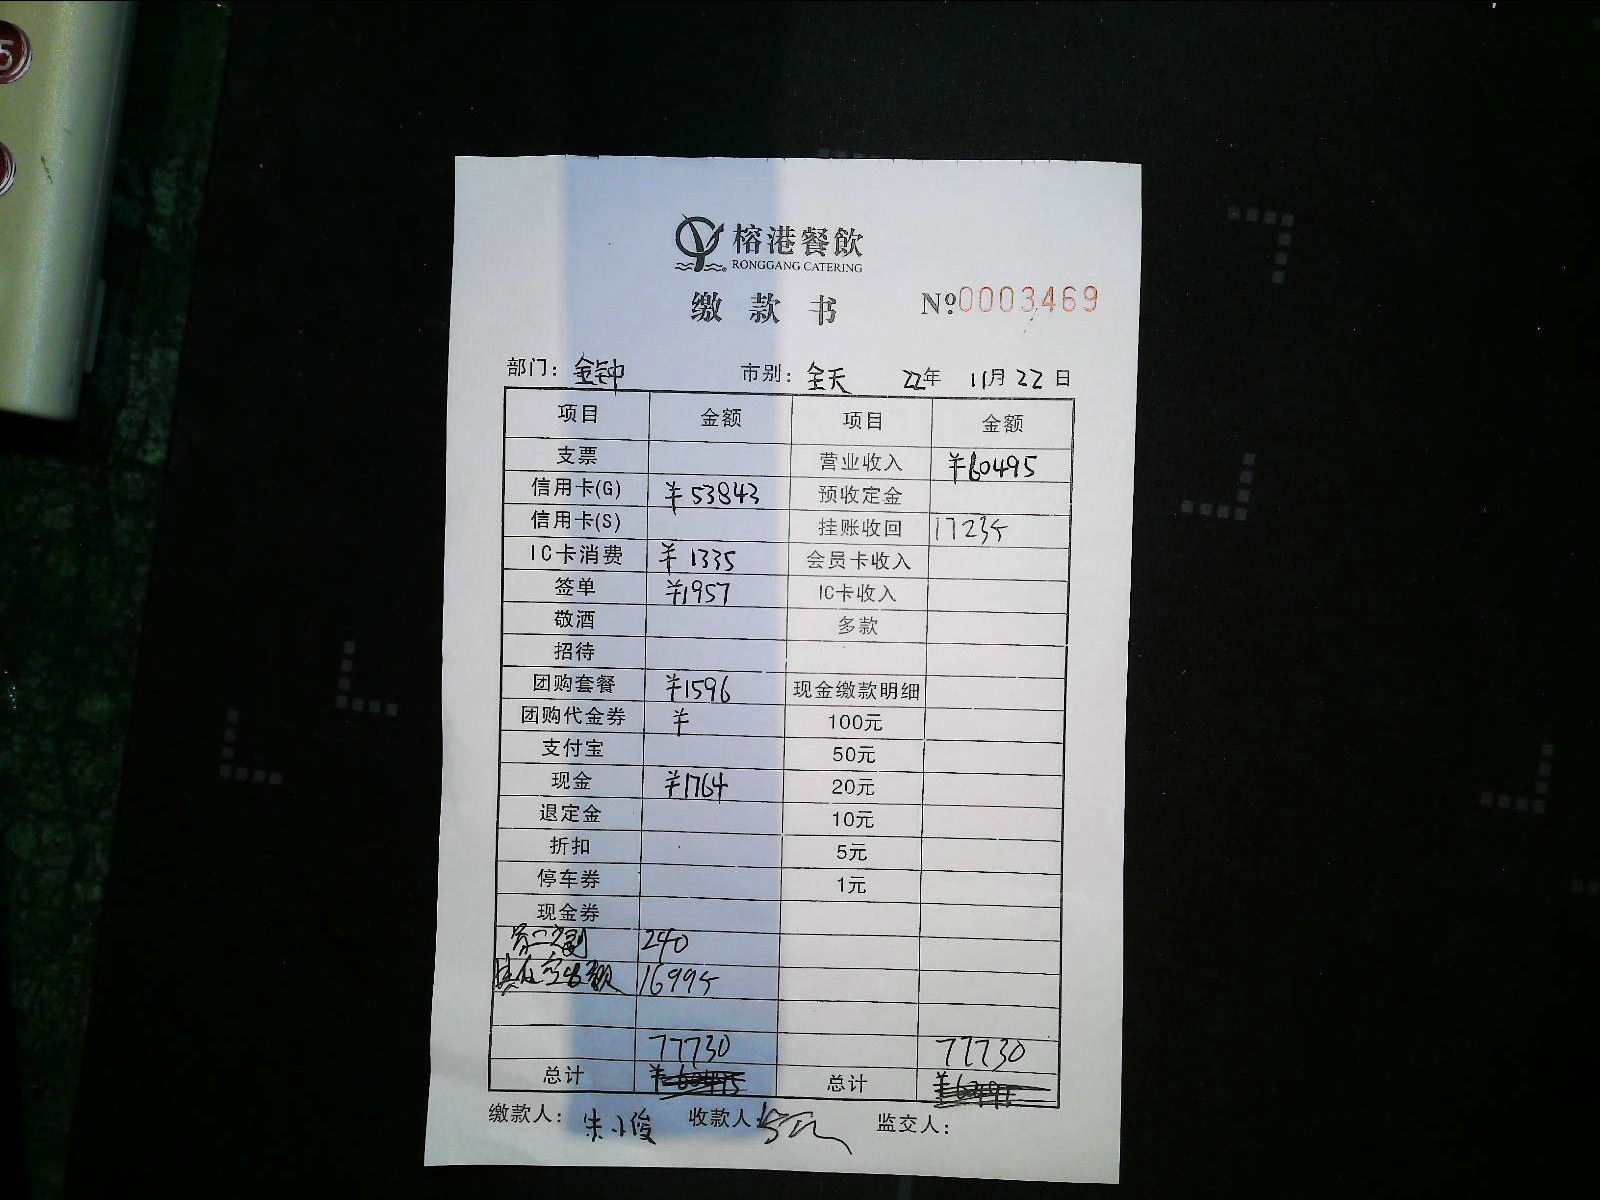 5
榕港餐飲
RONGGANG CATERING
缴款书 Nº0003469
部门: 金钟 市别: 全天 22年 11月 22 日
项目 金额 项目 金额
支票 营业收入 ¥60495
信用卡(G) ¥53843 预收定金
信用卡(S) 挂账收回 17235
IC卡消费 ¥1335 会员卡收入
签单 ¥1957 IC卡收入
敬酒 多款
招待
团购套餐 ¥1596 现金缴款明细
团购代金券 ¥ 100元
支付宝 50元
现金 ¥1764 20元
退定金 10元
折扣 5元
停车券 1元
现金券
240
16995
77730 77730
总计 总计
缴款人: 朱小俊 收款人: 监交人: